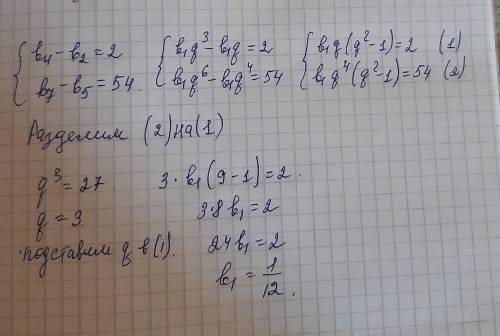 { b₄ - b₂ = 2
b₇ - b₅ = 54.
{ b₁q³ - b₁q = 2
b₁q⁶ - b₁q⁴ = 54
{ b₁q(q² - 1) = 2 (1)
b₁q⁴(q² - 1) = 54 (2)
Разделим (2) на (1)
q³ = 27.
q = 3.
подставим q в (1).
3 · b₁(9 - 1) = 2.
3·8 b₁ = 2
24 b₁ = 2
b₁ = 1/12.